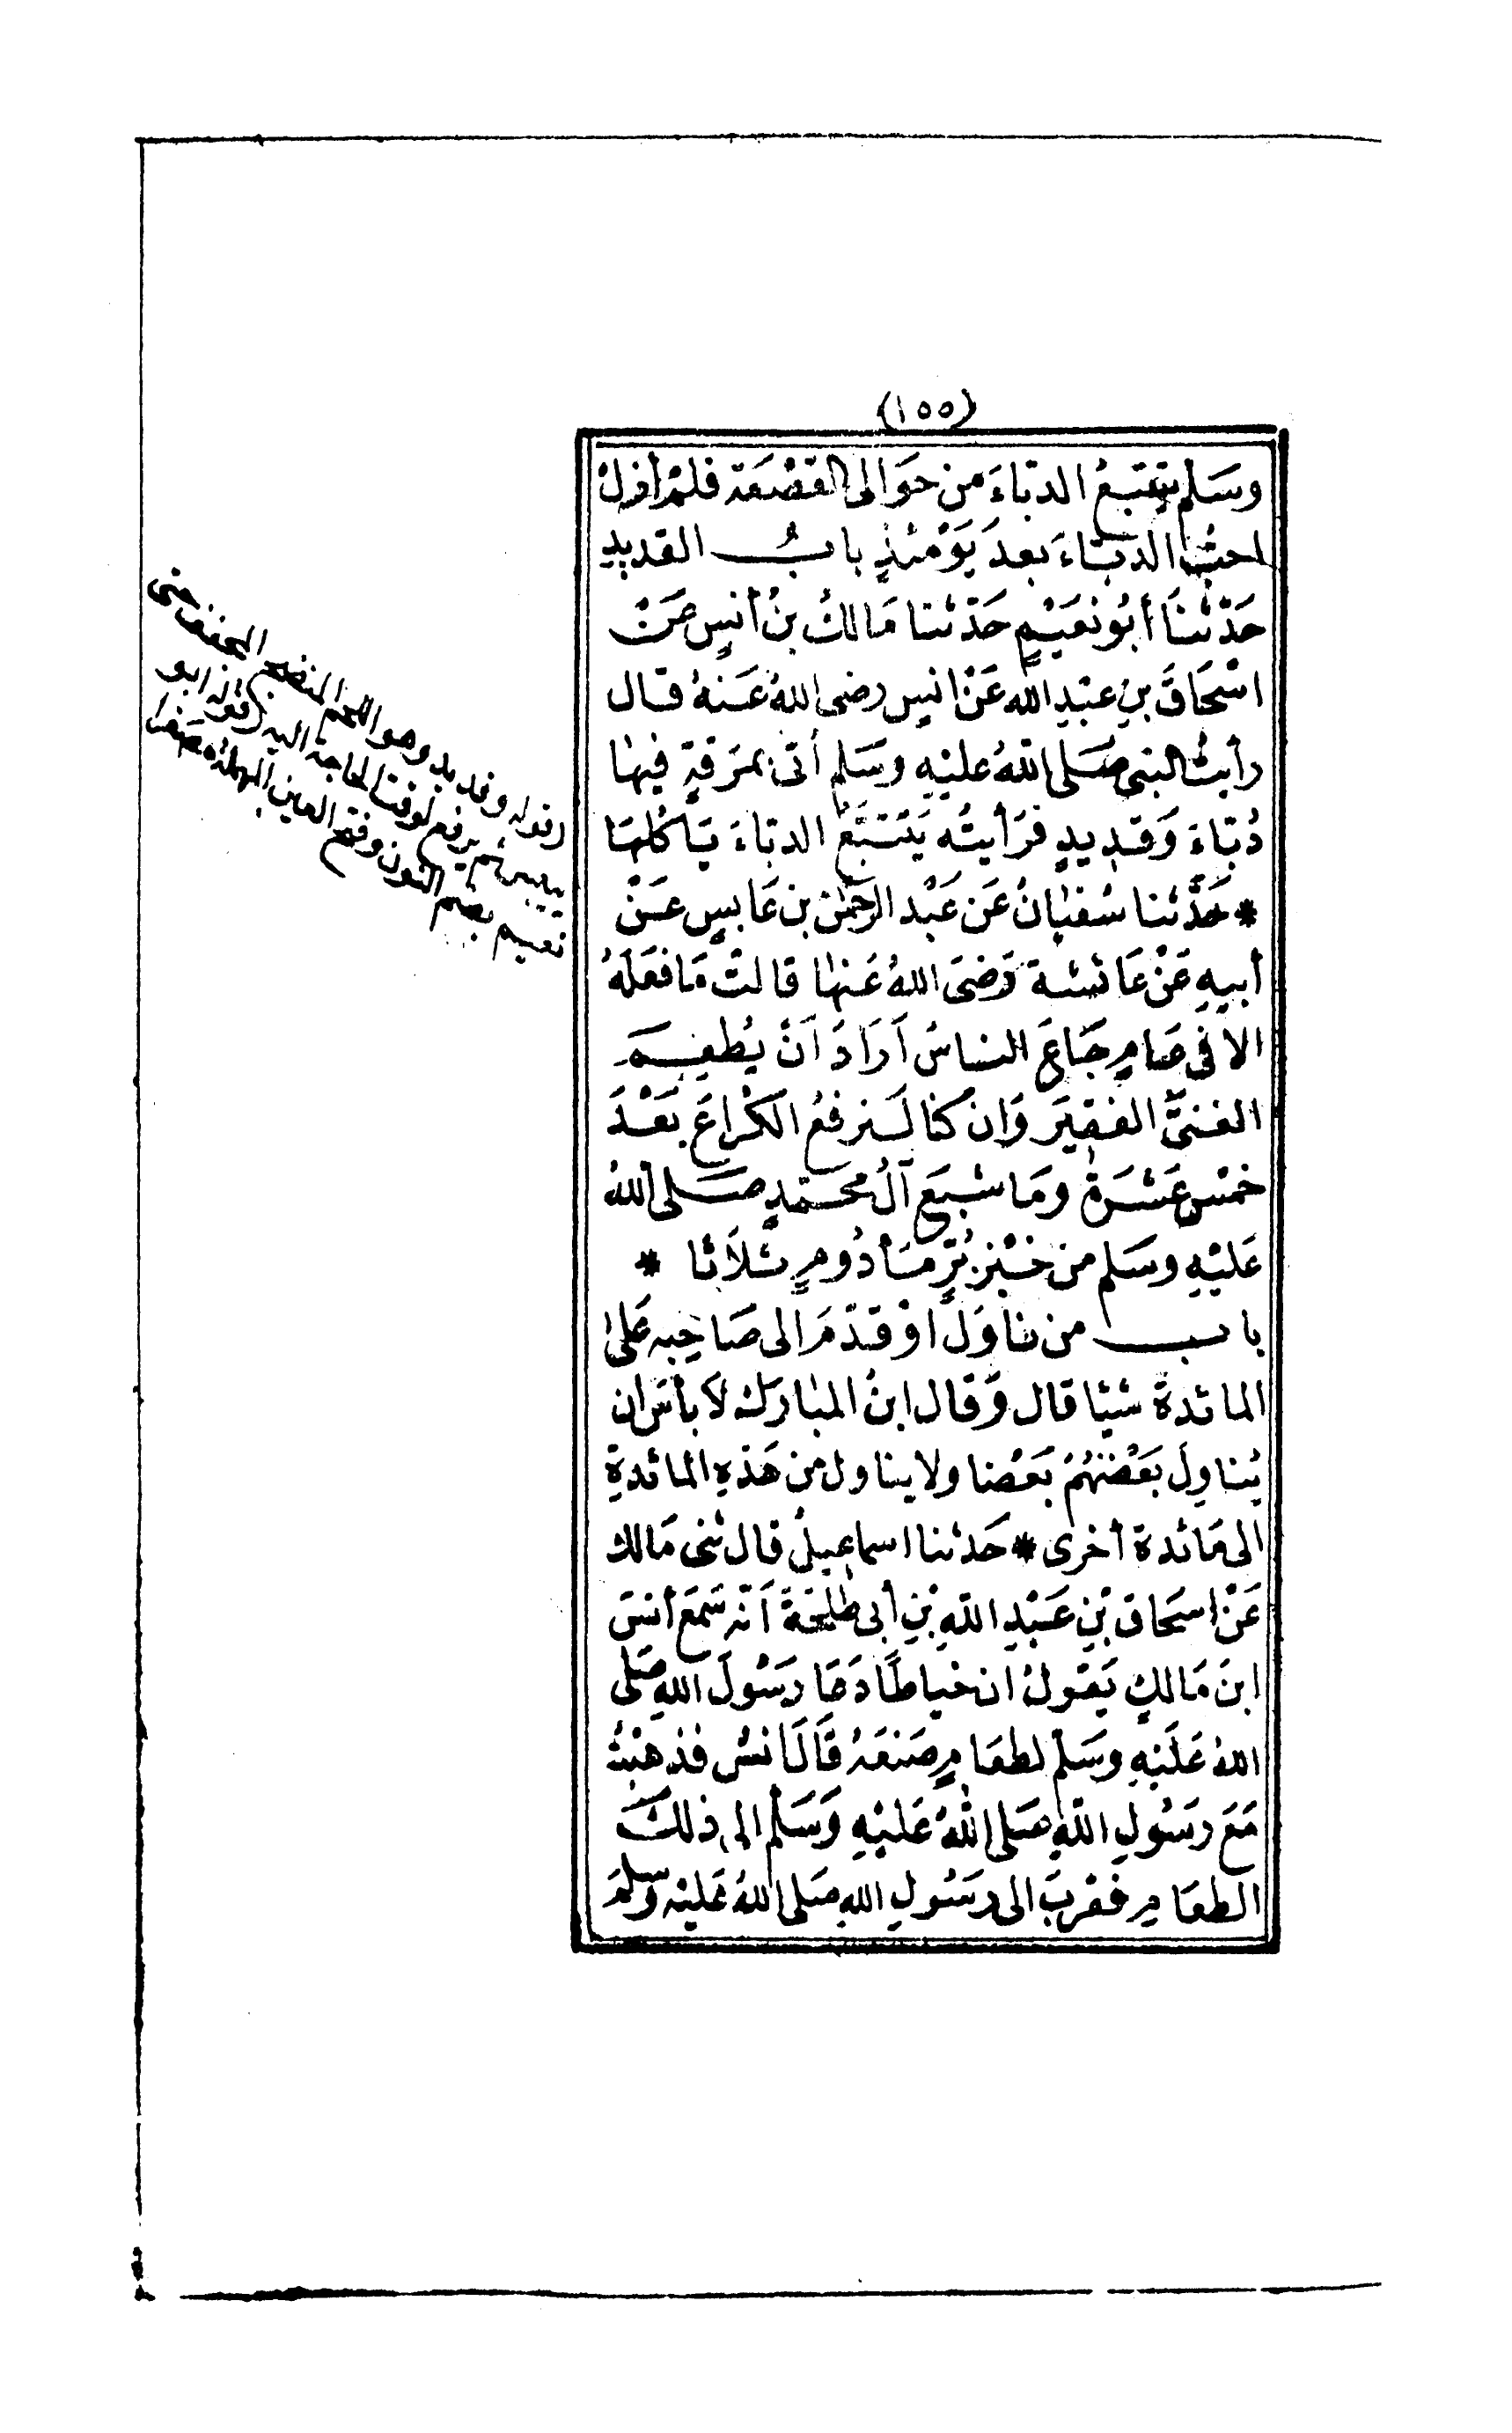 (١٥٥)
وسَلم يتتبعُ الدبّاءَ من حَوَالى القصْعَة فلمْ أزلْ
احبُّ الدبّاءَ بعدَ يَوْمئذٍ بابُ القديدِ
حَدّثنَا أبُو نعَيْمٍ حَدّثنا مَالكُ بنُ أنسٍ عَنْ
اسْحَاقَ بنِ عبْدِ الله عَنْ انسٍ رضى اللهُ عَنهُ قال
رأيتُ النبى صَلى اللهُ عليْهِ وسَلم أتى بمَرَقةٍ فيهَا
دُبّاءٌ وَقديدٍ فرَأيتُه يَتتَبَّعُ الدبّاءَ يَأكُلهَا
* حَدَّثنا سُفيَانُ عَن عَبْد الرحمٰن بن عَابسٍ عَنْ
أبيهِ عَنْ عَائشة رَضىَ اللهُ عَنهَا قالتْ مَا فعَلَهُ
الا فى عَامٍ جَاعَ الناسُ أرَادَ أنْ يُطعِمَ
الغنىّ الفقيرَ وَان كنا لَنرفعُ الكرَاعَ بَعْدَ
خمْسَ عَشرَة ومَا شبعَ آلُ محَمّدٍ صَلى اللهُ
عَليْهِ وسَلم من خبْز بُرٍّ مَأدُومٍ ثلاَثا *
باب من نَاوَلَ اوْ قدّمَ الى صَاحِبه عَلى
المائدة شيئا قال وَقال ابنُ المبَارك لاَ بأسَ ان
يُناوِلَ بَعْضهُمْ بَعْضا ولا يناول من هَذهِ المائدةِ
الى مَائدة أخرى * حَدثنا اسماعيلُ قال ثنى مَالك
عَنْ اسحَاق بْنِ عَبْدِ اللهِ بْنِ أبى طلحَة أنّه سَمعَ أنسَ
ابنَ مَالكٍ يَقولُ ان خياطًا دَعَا رَسُولَ اللهِ صَلى
اللهُ عَلَيْهِ وسَلم لطعَامٍ صَنعَهُ قَالَ انسٌ فذهبْتُ
مَعَ رسُولِ اللهِ صَلى اللهُ عَليْهِ وَسَلم الى ذلكَ
الطعَامِ فقرّبَ الى رسُولِ اللهِ صَلى اللهُ عَليْه وَسلمَ
(قوله وقديد وهو اللحم المنضج المجفف حتى
ييبس ثم يرفع لوقت الحاجة اليه (قوله ابو
نعيم بضم النون وفتح العين المهملة مصغرا